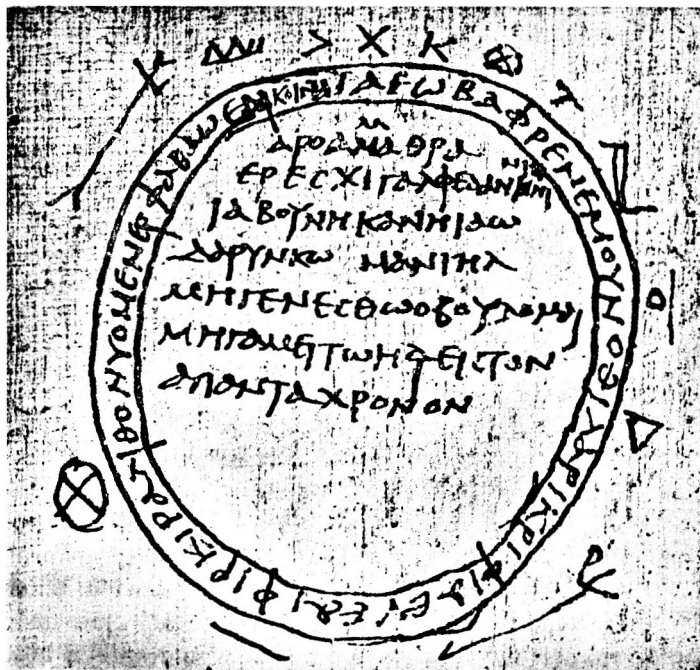 ΙΑΕΩΒΑΦΡΕΝΕΜΟΥΝΟΘΙΛΑΡΙΚΡΙΦΙΑΕΥΕΑΙΦΙΡΚΙΡΑΛΙΘΟΝΥΟΜΕΝΕΡΦΑΒΩΕΑΙ
ΑΡΟΑΜΑΘΡΑ
ΕΡΕCΧΙΓΑΛ
ΙΑΒΟΥΝΗΚΑΝΗΙΑΩ
ΔΑΡΥΝΚΩ ΜΑΝΙΗΛ
ΜΗΓΕΝΕCΘΩΟΒΟΥΛΟΜΑΙ
ΜΗΓΑΜΕΙΤΩΗΔΕΙCΤΟΝ
ΑΠΑΝΤΑΧΡΟΝΟΝ